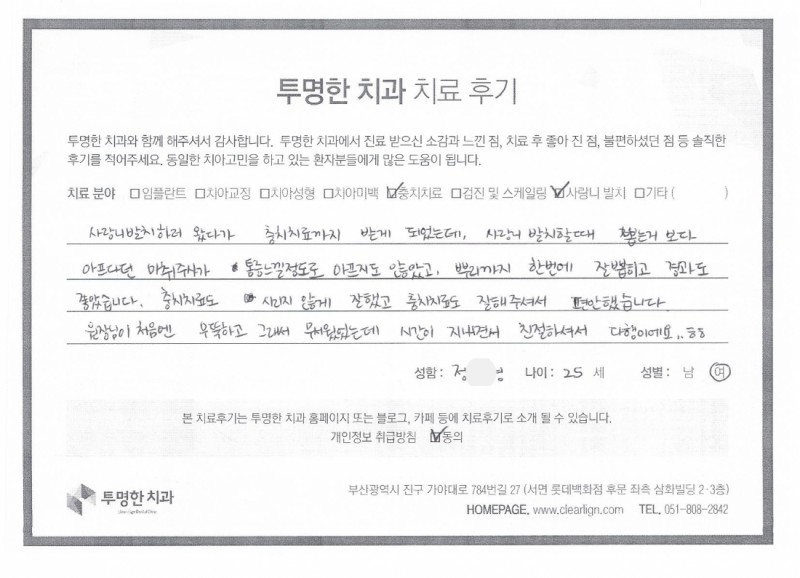 투명한 치과 치료 후기
투명한 치과와 함께 해주셔서 감사합니다. 투명한 치과에서 진료 받으신 소감과 느낀 점, 치료 후 좋아 진 점, 불편하셨던 점 등 솔직한
후기를 적어주세요. 동일한 치아고민을 하고 있는 환자분들에게 많은 도움이 됩니다.
치료 분야 □임플란트 □치아교정 □치아성형 □치아미백 ☑충치치료 □검진 및 스케일링 ☑사랑니 발치 □기타 ( )
사랑니발치하러 왔다가 충치치료까지 받게 되었는데, 사랑니 발치할때 뽑는거 보다
아프다던 마취주사가 통증느낄정도로 아프지도 않았고, 뿌리까지 한번에 잘뽑히고 경과도
좋았습니다. 충치치료도 시리지 않게 잘했고 충치치료도 잘해주셔서 편안했습니다
원장님이 처음엔 무뚝하고 그래서 무서웠었는데 시간이 지내면서 친절하셔서 다행이에요..ㅎㅎ
성함 : 정 영 나이 : 25 세 성별 : 남 여
본 치료후기는 투명한 치과 홈페이지 또는 블로그, 카페 등에 치료후기로 소개 될 수 있습니다.
개인정보 취급방침 ☑동의
투명한 치과
부산광역시 진구 가야대로 784번길 27 (서면 롯데백화점 후문 좌측 삼화빌딩 2-3층)
HOMEPAGE. www.clearlign.com TEL. 051-808-2842